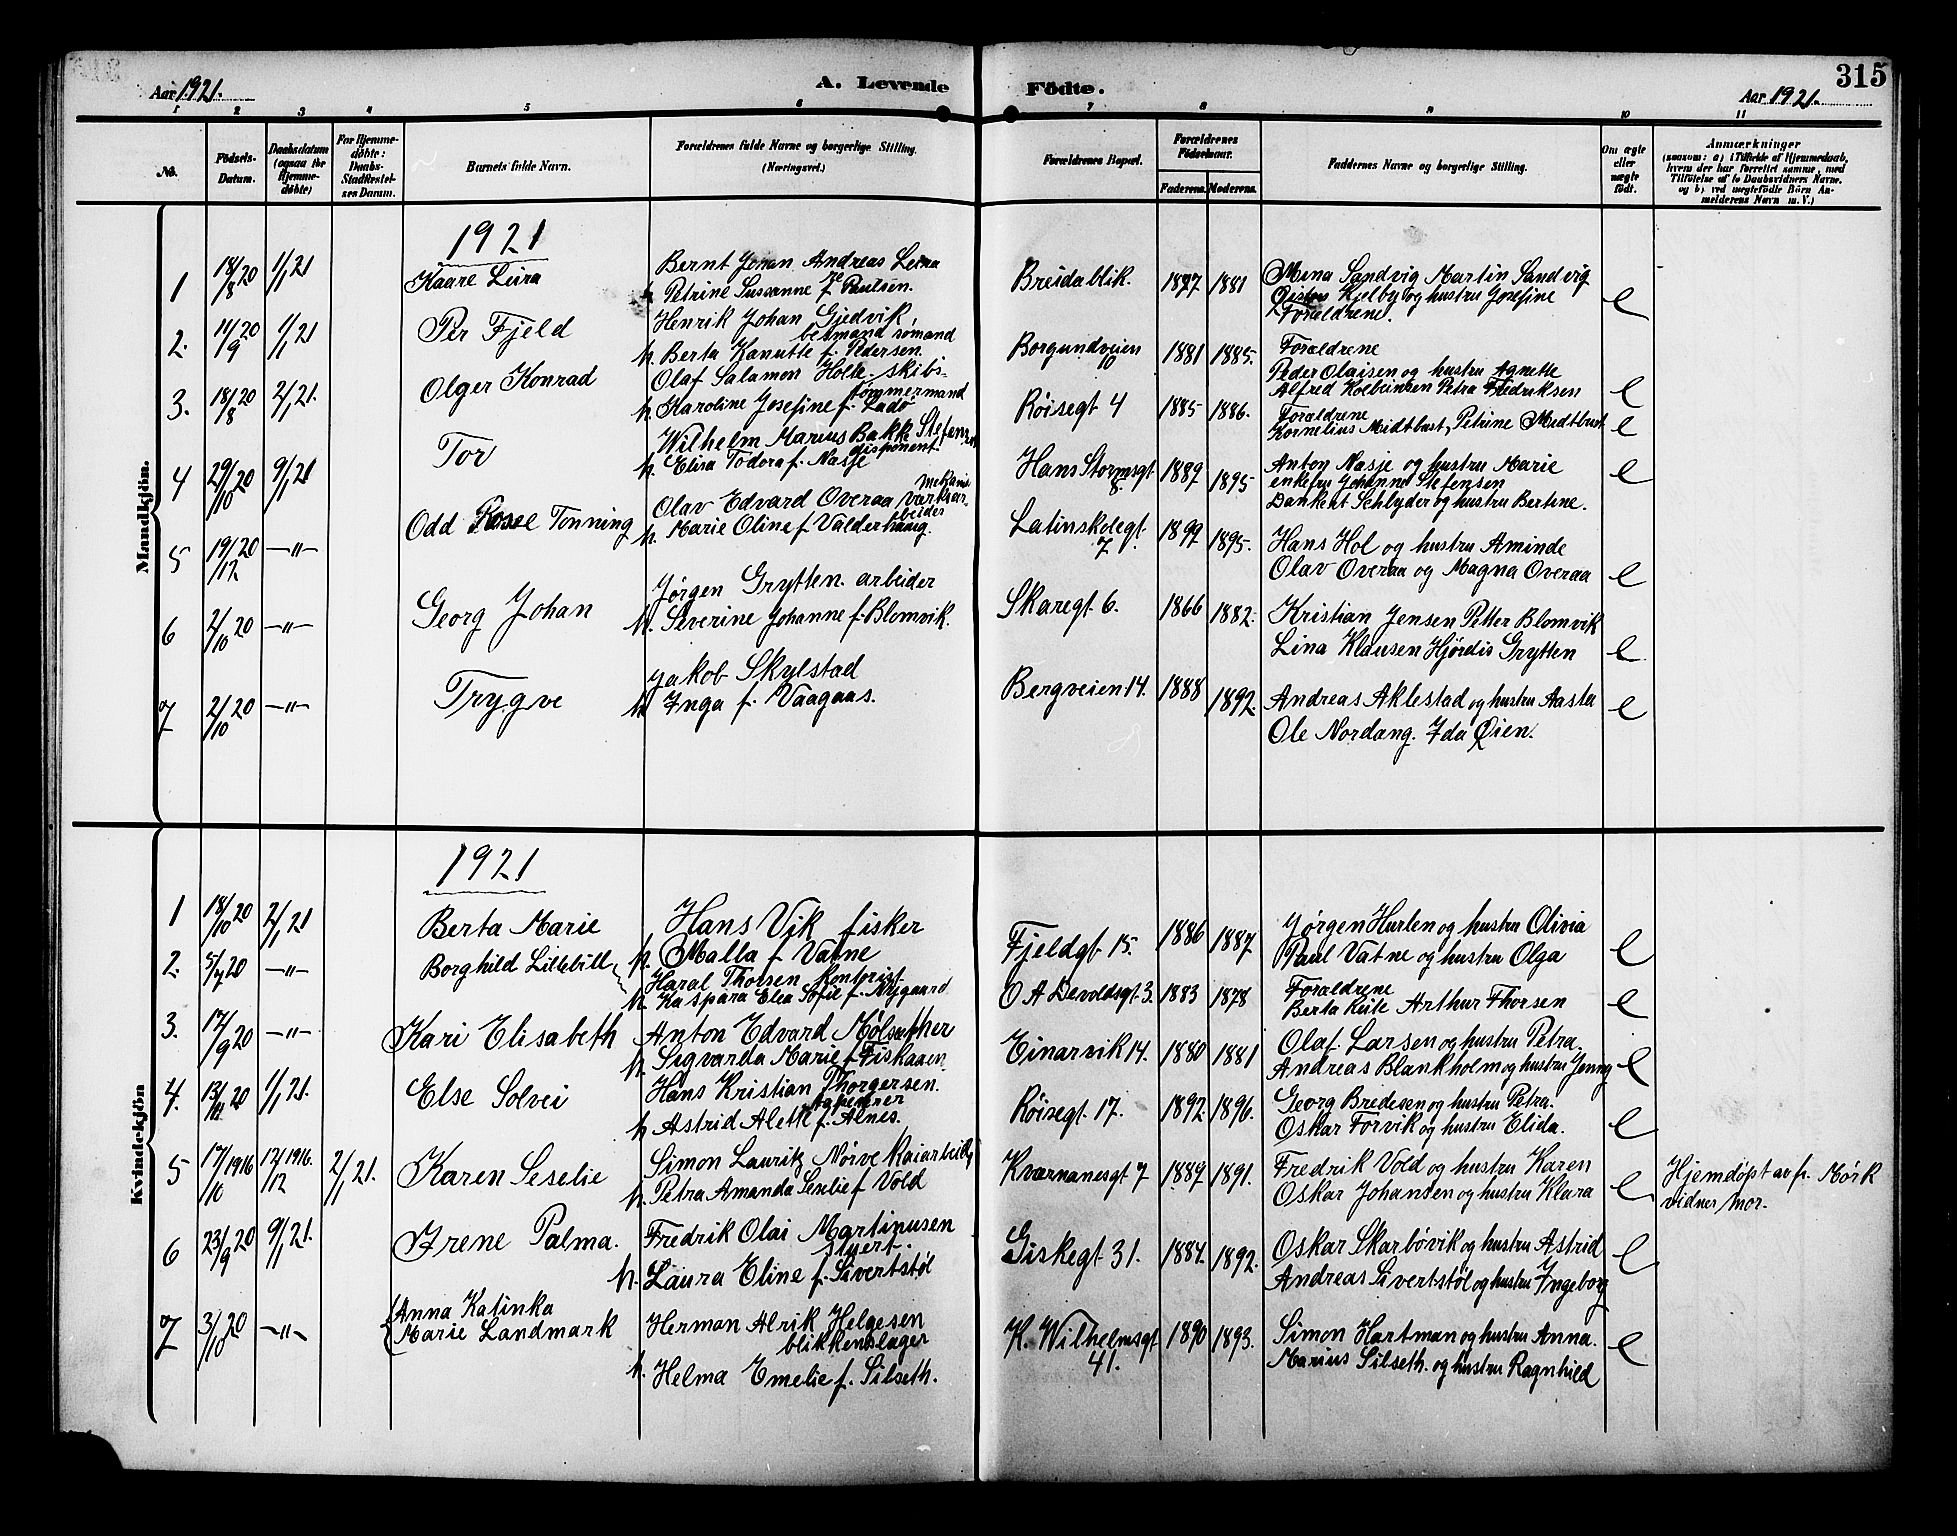 315
Aar 1921.
A. Levende Födte.
Aar 1921.
1 2 3 4 5 6 7 8 9 10 11
No.
Födsels-Datum.
Daabsdatum (ogsaa for Hjemme-døbte)
For Hjemme-døbte: Daabs-Stadfæstel-ses Datum.
Barnets fulde Navn.
Forældrenes fulde Navne og borgerlige Stilling.
(Næringsvei.)
Forældrenes Bopæl.
Forældrenes Födselsaar.
Faderens. Moderens.
Faddernes Navne og borgerlige Stilling.
Om ægte eller uægte født.
Anmærkninger
(saasom: a) i Tilfælde af Hjemmedaab,
hvem der har forrettet samme, med
Tilføielse af to Daabsvidners Navne,
og b) ved uægtefødte Börn An-
melderens Navn m. V.)
Mandkjön.
1921
1 18/8 20 1/1 21 Kaare Leira
Bernt Johan Andreas Leira
h. Petrine Sussanne f. Paulsen.
Breidablik. 1877 1881
Mena Sandvig Martin Sandvig
Kjelby og hustru Josefine
Forældrene. e
2. 11/9 20 1/1 21 Per Fjeld
Henrik Johan Gjedvik
bestmand sømand
h. Berta Kanutte f. Pedersen.
Borgundveien 1881 1885.
Forældrene
Peder Olaisen og hustru Agnette
Alfred Kolbeinsen Petra Fredriksen e
3. 18/8 20 2/1 21. Olger Konrad
Olaf Salamon Holte skibs-
tømmermand
h. Karoline Josefine f. Ladø
Røisegt 4 1885 1886.
Forældrene
Kornelius Midtbust, Petrine Midtbust e
4 29/10 20 9/1 21 Tor
Wilhelm Marius Bakke Stefensen
disponent
h. Elisa Todora f. Nasje
Hans Stormsgt 8. 1889 1895
Anton Nasje og hustru Marie
enkefru Johanna Stefensen
Dankert Schlyder og hustru Bertine. e
5 19/12. 20 -"- Odd Tonning
Olav Edvard Overaa mekanisk
værksar-
beider
h. Marie Oline f. Valderhaug.
Latinskolegt. 7 1899 1895.
Hans Hol og hustru Aminde
Olav Overaa og Magna Overaa e
6 2/10 20 -"- Georg Johan
Jørgen Grytten. arbeider
h. Severine Johanne f. Blomvik.
Skaregt 6. 1866 1882.
Kristian Jensen Petter Blomvik
Lina Klausen Hjørdis Grytten e
7 2/10 20 -"- Trygve
Jakob Skylstad
h Inga f. Vaagaas.
Bergveien 14. 1888 1892.
Andreas Aklestad og hustru Aasta
Ole Nordang. Ida Øien. e
Kvindekjön
1921
1 18/10 20 2/1 21 Berta Marie
Hans Vik fisker
h. Malla f Vatne
Fjeldgt 15. 1886 1887
Jørgen Hurlen og hustru Olivia
Paul Vatne og hustru Olga e
2. 5/7 20 -"- Borghild Lillebill
Haral Thorsen kontorist
h. Kaspara Elea Sofie f. Nygaard
O A Devoldsgt. 3. 1883 1878
Forældrene
Berta Reite Arthur Thorsen e
3. 17/9 20 -"- Kari Elisabeth
Anton Edvard Mølsæther
h. Sigvarda Marie f. Fiskaaen.
Einarvik 14. 1880 1881
Olaf Larsen og hustru Petra.
Andreas Blankholm og hustru Jenny e
4. 13/11 20 1/1 21. Else Solvei
Hans Kristian Thorgersen.
tapetserer
h Astrid Aleth f. Alnes.
Røisegt 17. 1892 1896.
Georg Bredesen og hustru Petra.
Oskar Forvik og hustru Elida. e
5 17/10 1916 12/12 1916. 2/1 21. Karen Seselie
Simon Lauritz Nørve kaiarbeider
h. Petra Amanda Seselie f Vold
Kvernanesgt 7 1889 1891.
Fredrik Vold og hustru Karen
Oskar Johansen og hustru Klara e
Hjemdøpt av fr. Mørk
vidner mor.
6 23/9 20 9/1 21. Irene Palma.
Fredrik Olai Martinusen
stuert.
h. Laura Eline f. Sivertstøl
Giskegt 31. 1884. 1892.
Oskar Skarbøvik og hustru Astrid
Andreas Sivertstøl og hustru Ingeborg e
7 3/10 20 -"- Anna Katinka
Marie Landmark
Herman Alrik Helgesen
blikkenslager
h. Helma Emelie f. Silseth.
K. Wilhelmsgt 41. 1890 1893.
Simon Hartman og hustru Anna.
Marius Silseth. og hustru Ragnhild e